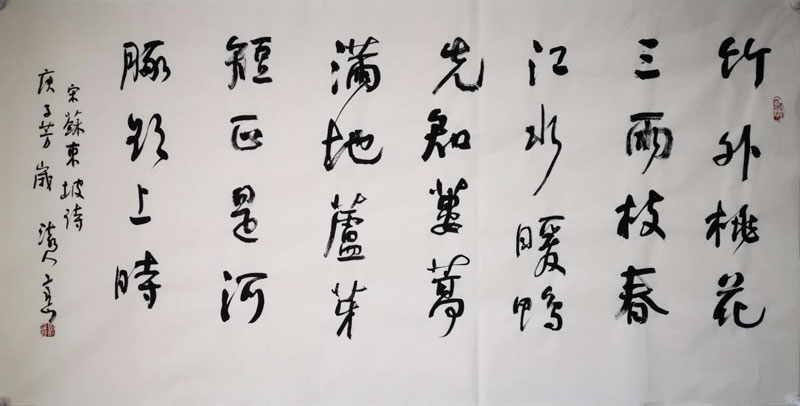 竹外桃花
三兩枝春
江水暖鴨
先知蔞蒿
滿地蘆芽
短正是河
豚欲上時
宋蘇東坡诗
庚子芳歲